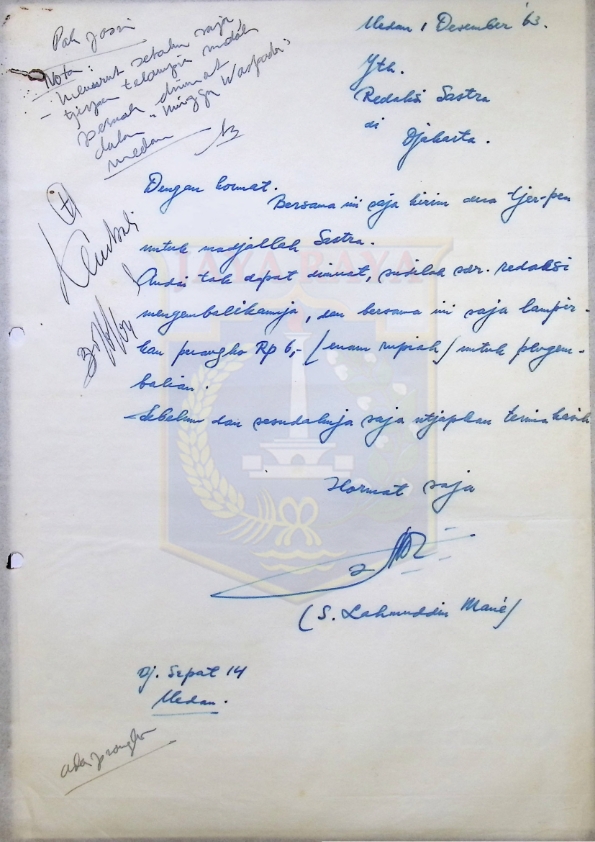 Pak Jassin
Nota:
- menurut setahu saja
tjerpen telaumpa sudah
pernah dimuat
dalam "Minggu Waspada"
medan
Medan, 1 Desember '63.
Yth.
Redaksi Sastra
di
Djakarta.
Dengan hormat.
Bersama ini saja kirim dua tjer-pen
untuk madjallah Sastra.
Andai tak dapat dimuat, sudilah sdr. redaksi
mengembalikannja, dan bersama ini saja lampir-
kan perangko Rp 6,- (enam rupiah) untuk pengem-
balian.
Sebelum dan sesudahnja saja utjapkan terima kasih
Hormat saja
(S. Lahmuddin Marie)
Dj. Sepat 14
Medan.
Kembali
ada prangko
JAYA RAYA